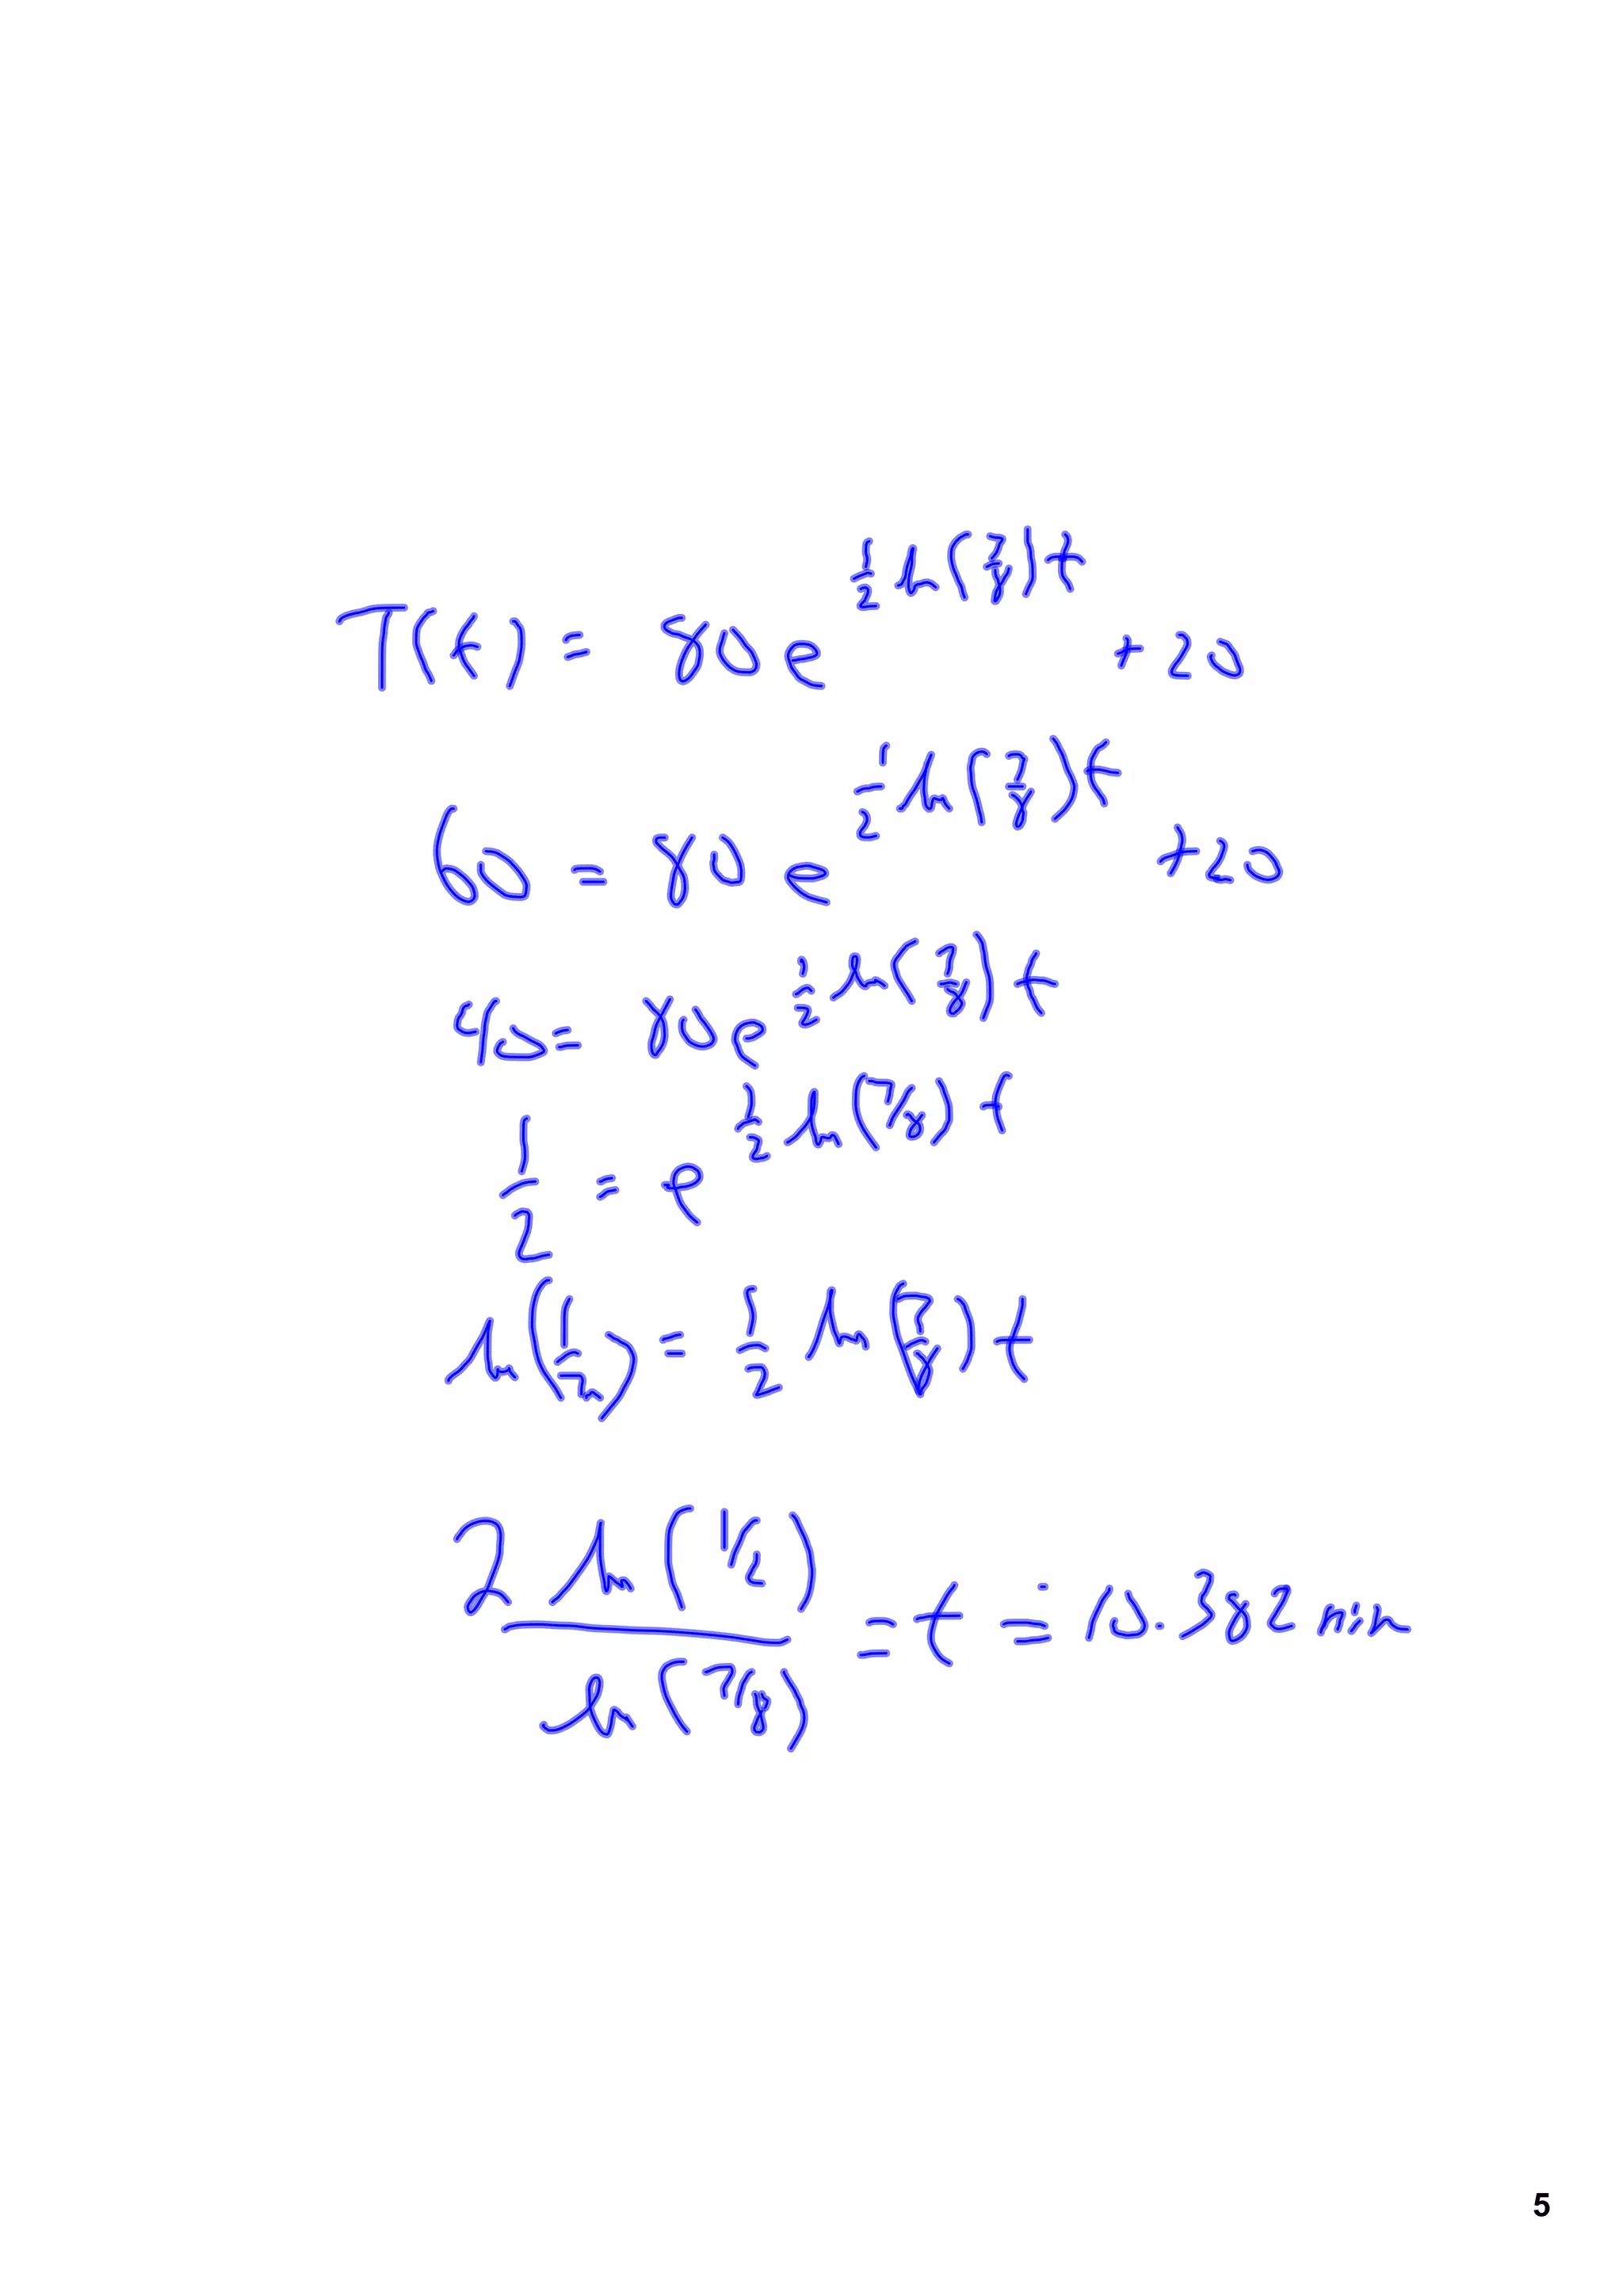 T(t) = 80e^{\frac{1}{2} ln(\frac{7}{8})t} + 20
60 = 80e^{\frac{1}{2} ln(\frac{7}{8})t} + 20
40 = 80e^{\frac{1}{2} ln(\frac{7}{8})t}
\frac{1}{2} = e^{\frac{1}{2} ln(7/8)t}
ln(\frac{1}{2}) = \frac{1}{2} ln(\frac{7}{8})t
\frac{2 ln(1/2)}{ln(7/8)} = t ≐ 10.382 min
5